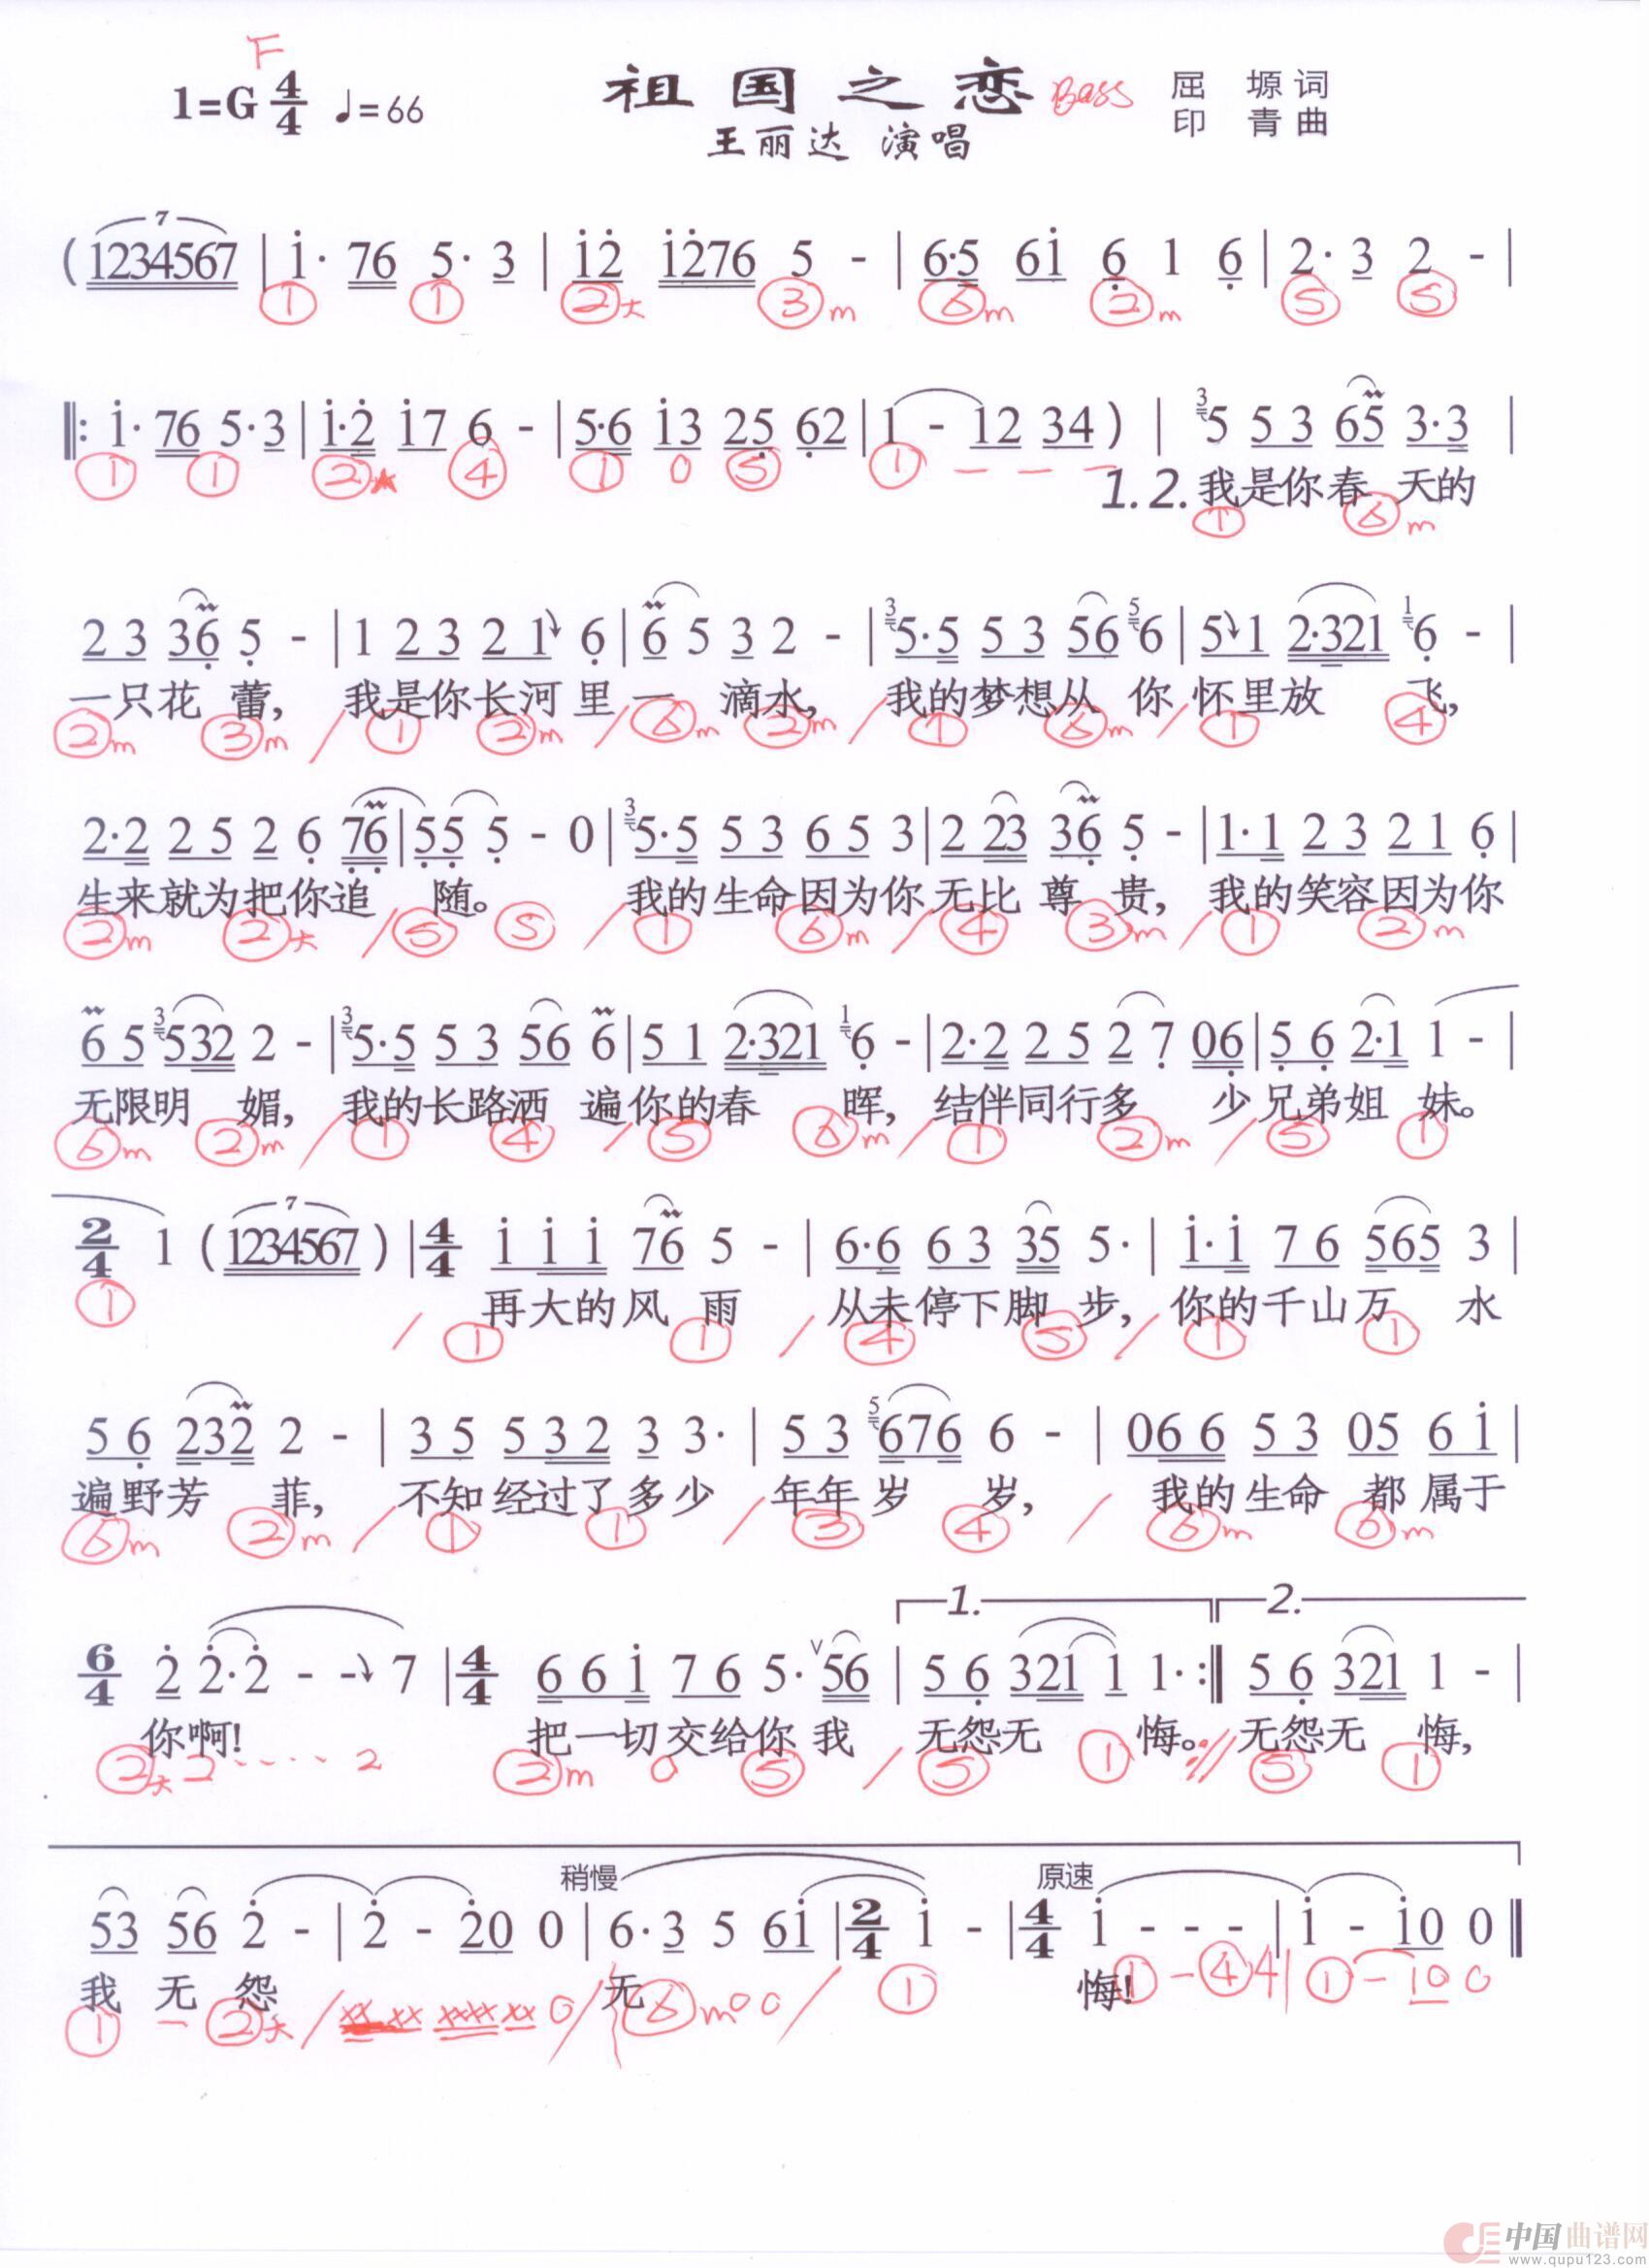 F
1=G 4/4 ♩=66 祖国之恋 Bass 屈 塬 词
王丽达 演唱 印 青 曲
(1234567 | i· 76 5· 3 | i2 i276 5 - | 6·5 6i 6 1 6 | 2· 3 2 - |
① ① ②大 ③m ⑥m ②m ⑤ ⑤
‖: i· 76 5·3 | i·2 i7 6 - | 5·6 i3 25 62 | 1 - 12 34 ) | 5 5 3 65 3·3 |
1.2. 我是你春 天的
① ① ② ④ ① 0 ⑤ ① - - - ① ⑥m
2 3 36 5 - | 1 2 3 2 1 6 | 6 5 3 2 - | 5·5 5 3 56 6 | 5 1 2·321 6 - |
一只花 蕾, 我是你长河 里 一 滴水, 我的梦想从 你 怀里放 飞,
②m ③m / ① ②m / ⑥m ②m / ① ⑥m / ① ④
2·2 2 5 2 6 76 | 55 5 - 0 | 5·5 5 3 6 5 3 | 2 23 36 5 - | 1·1 2 3 2 1 6 |
生来就为把你追 随。 我的生命因为你无比 尊 贵, 我的笑容因为你
②m ②大 / ⑤ ⑤ / ① ⑥m / ④ ③m / ① ②m
6 5 532 2 - | 5·5 5 3 56 6 | 5 1 2·321 6 - | 2·2 2 5 2 7 06 | 5 6 2·1 1 - |
无限明 媚, 我的长路洒 遍你的春 晖, 结伴同行多 少兄弟姐 妹。
⑥m ②m / ① ④ / ⑤ ⑥m / ① ②m / ⑤ ①
2/4 1 (1234567) | 4/4 i i i 76 5 - | 6·6 6 3 35 5· | i·i 7 6 565 3 |
再大的风 雨 从未停下脚 步, 你的千山万 水
① / ① ① / ④ ⑤ / ① ①
5 6 232 2 - | 3 5 5 3 2 3 3· | 5 3 676 6 - | 06 6 5 3 05 6 i |
遍野芳 菲, 不知经过了多少 年年岁 岁, 我的生命 都属于
⑥m ②m / ① ① / ③ ④ / ⑥m ⑥m
1. 2.
6/4 2 2·2 - - 7 | 4/4 6 6 i 7 6 5· 56 | 5 6 321 1 1· :‖ 5 6 321 1 - |
你啊! 把一切交给你我 无怨无 悔。 无怨无 悔,
②大 2 ···· 2 ②m 0 ⑤ / ⑤ ① :// ⑤ ①
稍慢 原速
53 56 2 - | 2 - 20 0 | 6·3 5 6i | 2/4 i - | 4/4 i - - - | i - i0 0 ‖
我 无 怨 无 悔!
① - ②大 / xx xx xxxx xx 0 / ⑥m 0 0 / ① ① - ④ 4 | ① - 10 0
中国曲谱网
www.qupu123.com